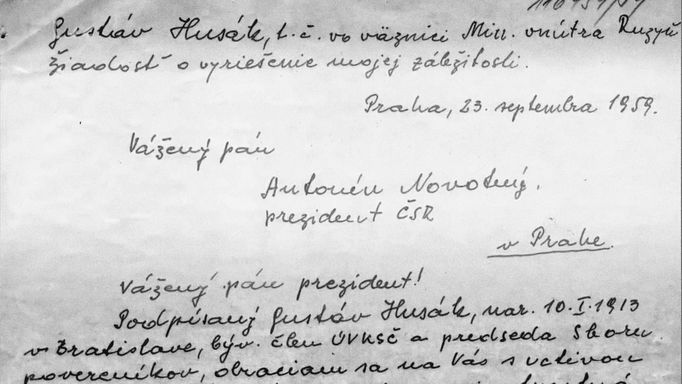 Gustáv Husák, t.č. vo väznici Min. vnútra Ruzyň
Žiadosť o vyriešenie mojej záležitosti.
Praha, 23. septembra 1959.
Vážený pán
Antonín Novotný,
prezident ČSR
v Prahe.
Vážený pán prezident!
Podpísaný Gustáv Husák, nar. 10.I.1913
v Bratislave, býv. člen ÚVKSČ a predseda Sboru
povereníkov, obraciam sa na Vás s uctivou